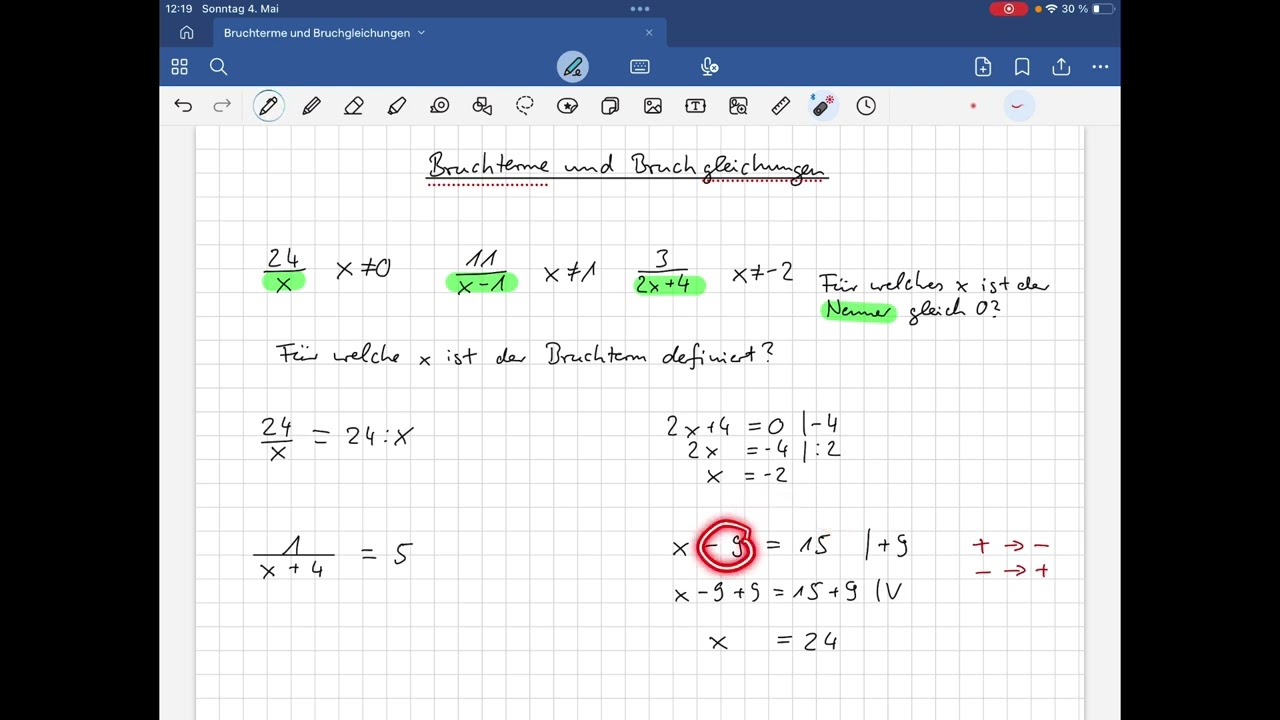 12:19 Sonntag 4. Mai
30 %
Bruchterme und Bruchgleichungen
Bruchterme und Bruchgleichungen
24/x x ≠ 0 11/(x - 1) x ≠ 1 3/(2x + 4) x ≠ -2 Für welches x ist der
Nenner gleich 0?
Für welche x ist der Bruchterm definiert?
24/x = 24 : x
2x + 4 = 0 | - 4
2x = -4 | : 2
x = -2
1/(x + 4) = 5
x - 9 = 15 | + 9
+ → -
- → +
x - 9 + 9 = 15 + 9 | V
x = 24